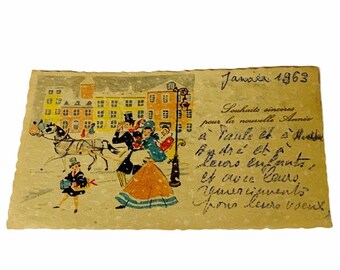 Janvier 1963
Souhaits sincères
pour la nouvelle Année
à Paule et à
André et à
leurs enfants,
et avec leurs
remerciements
pour leurs voeux